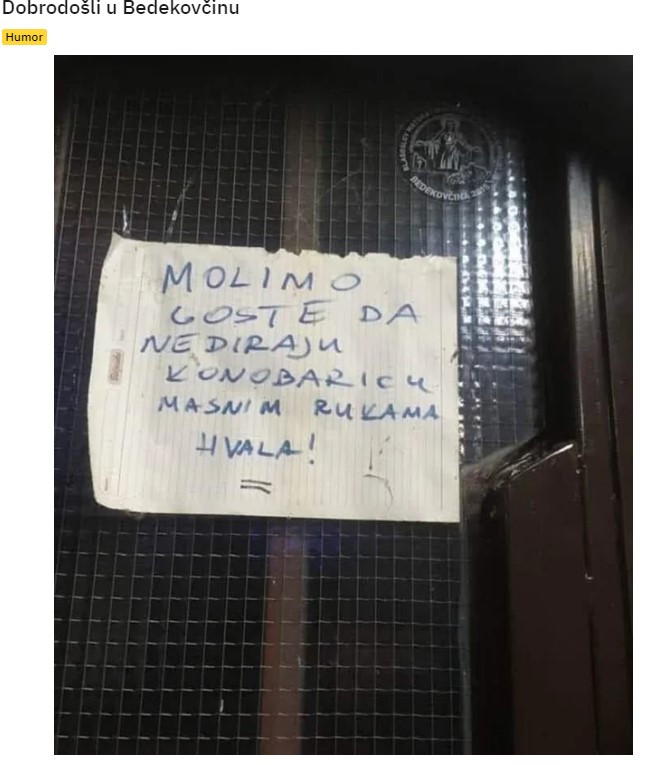 Dobrodošli u Bedekovčinu
Humor
MOLIMO
GOSTE DA
NEDIRAJU
KONOBARICU
MASNIM RUKAMA
HVALA!